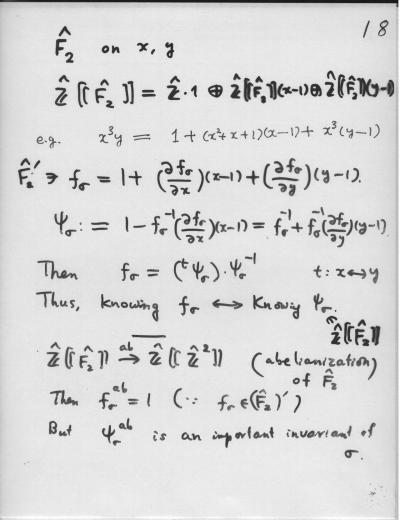 18
F̂₂ on x, y
Ẑ[[F̂₂]] = Ẑ·1 ⊕ Ẑ[[F̂₂]](x-1) ⊕ Ẑ[[F̂₂]](y-1)
e.g. x³y = 1+(x²+x+1)(x-1)+x³(y-1)
F̂₂′ ∋ f_σ = 1+(∂f_σ/∂x)(x-1)+(∂f_σ/∂y)(y-1).
Ψ_σ := 1-f_σ⁻¹(∂f_σ/∂x)(x-1) = f_σ⁻¹+f_σ⁻¹(∂f_σ/∂y)(y-1)
Then f_σ = (ᵗΨ_σ)·Ψ_σ⁻¹ t: x↔y
Thus, knowing f_σ ↔ Knowing Ψ_σ.
∈ Ẑ[[F̂₂]]
Ẑ[[F̂₂]] →ᵃᵇ Ẑ[[Ẑ²]] (abelianization)
of F̂₂
Then f_σᵃᵇ = 1 (∵ f_σ ∈ (F̂₂)′)
But Ψ_σᵃᵇ is an important invariant of
σ.